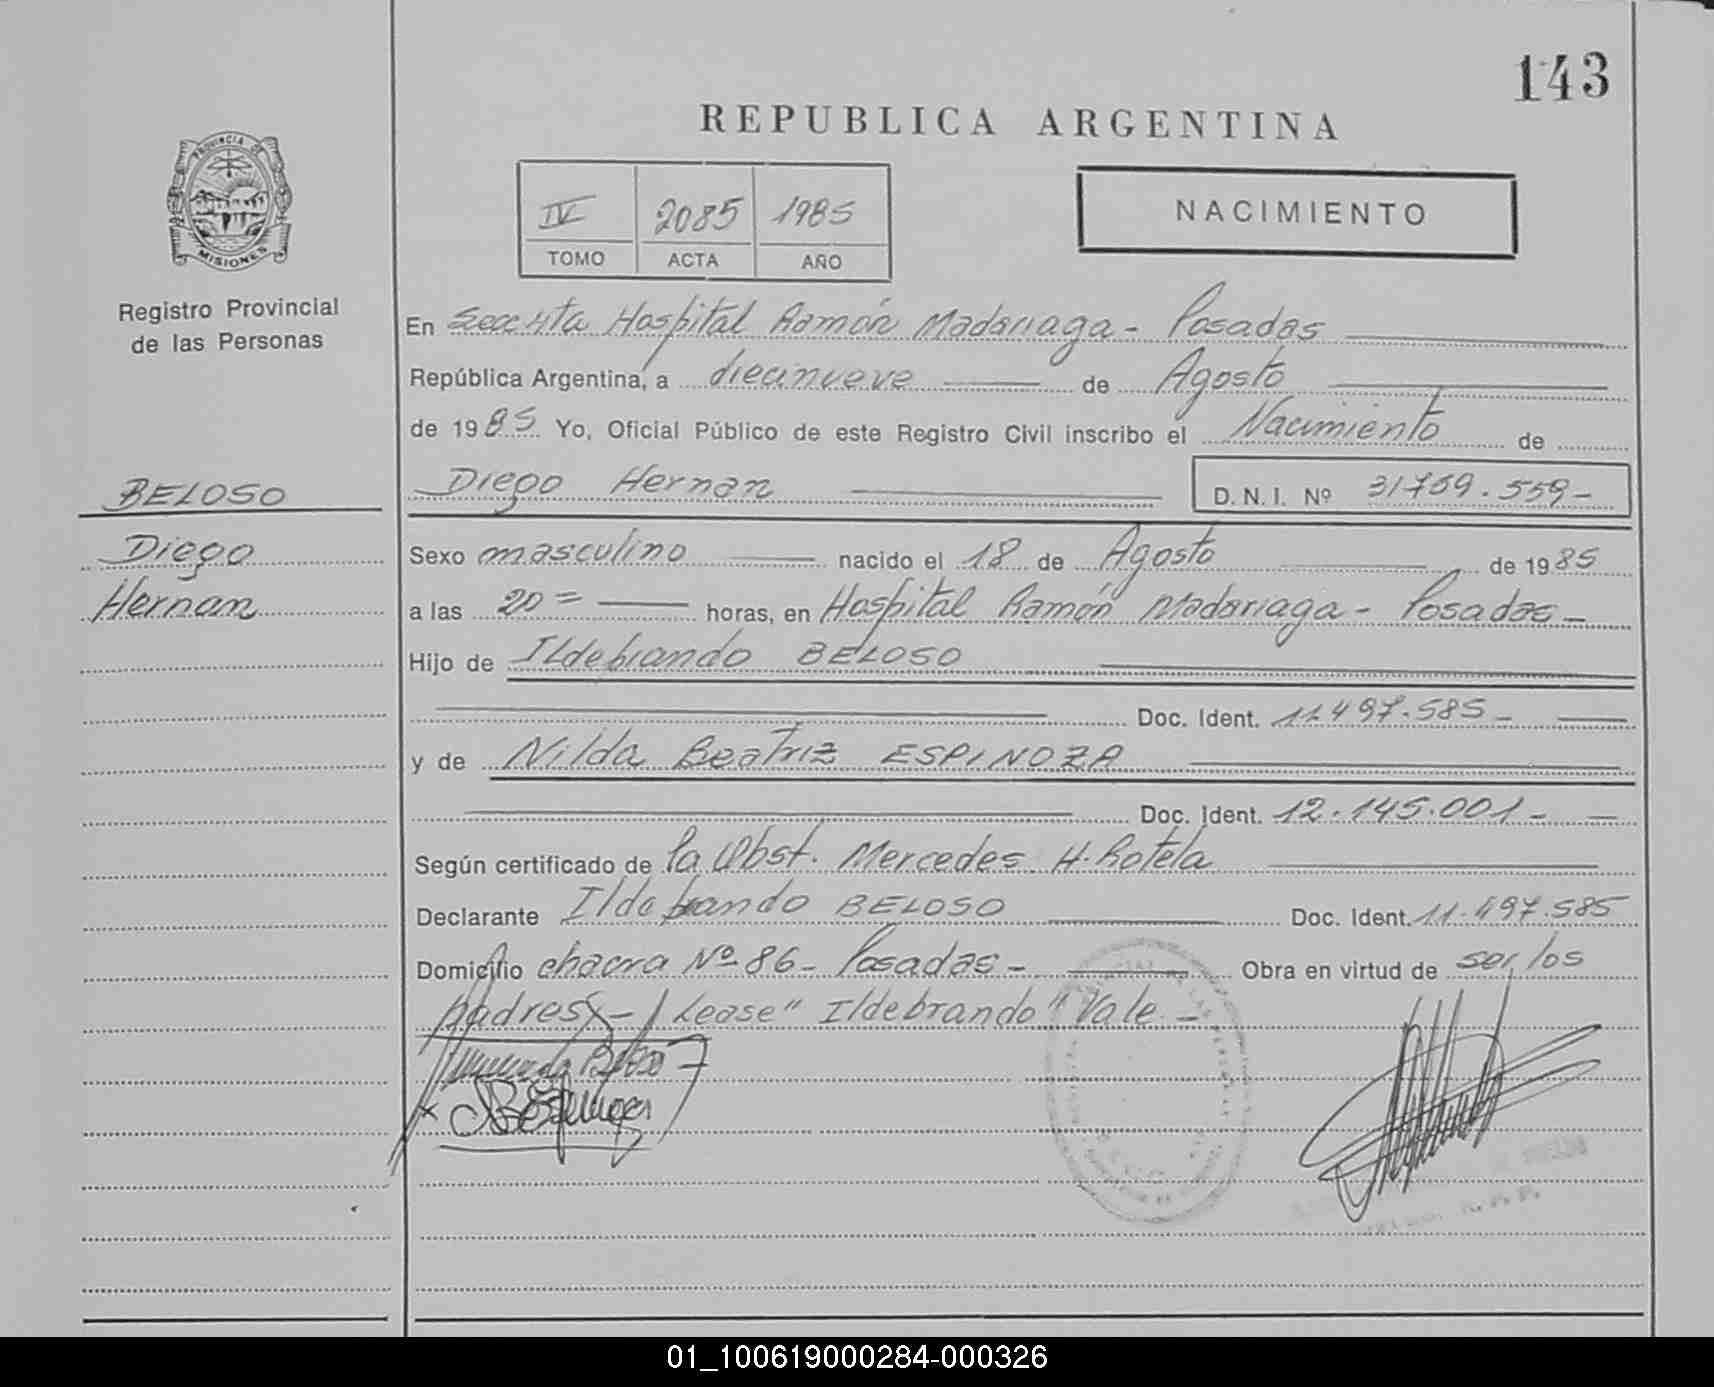 143
REPUBLICA ARGENTINA
PROVINCIA DE
MISIONES
Registro Provincial
de las Personas
IV 2085 1985
TOMO ACTA AÑO
NACIMIENTO
En Hospital Ramón Madariaga - Posadas
República Argentina, a diecinueve de Agosto
de 1985 Yo, Oficial Público de este Registro Civil inscribo el Nacimiento de
BELOSO
Diego Hernan D.N.I. Nº 31769.559-
Diego
Hernan
Sexo masculino nacido el 18 de Agosto de 1985
a las 20= horas, en Hospital Ramón Madariaga - Posadas -
Hijo de Ildebrando BELOSO
Doc. Ident. 11497.585-
y de Nilda Beatriz ESPINOZA
Doc. Ident. 12.145.001-
Según certificado de la Obst. Mercedes H. Rotela
Declarante BELOSO Doc. Ident. 11.497.585
Domicilio chacra Nº 86- Posadas - Obra en virtud de ser los
padres - Lease "Ildebrando" Vale -
01_100619000284-000326